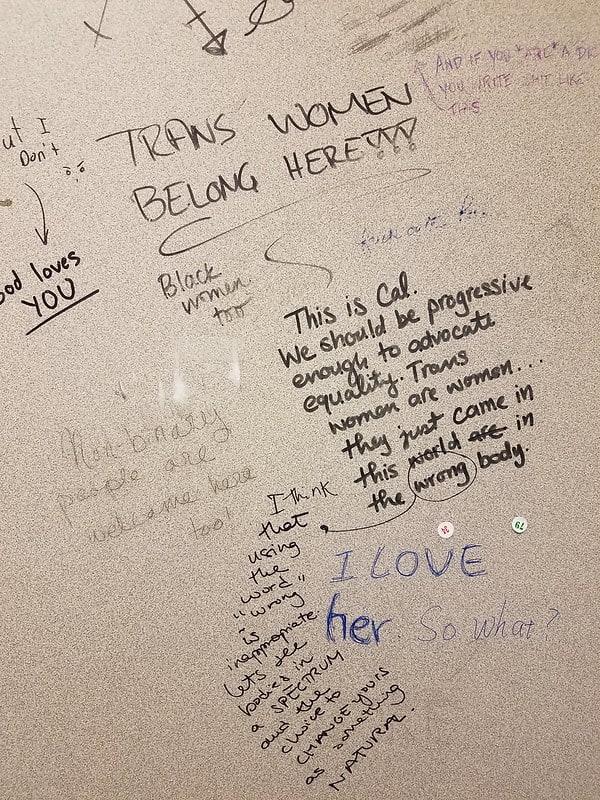 AND IF YOU *ARE* A
YOU WRITE SHIT LIKE
THIS
ut I
Don't
TRANS WOMEN
BELONG HERE!!!
od loves
YOU
Black
women
too
This is Cal.
We should be progressive
enough to advocate
equality. Trans
women are women...
they just came in
this world are in
the wrong body.
Non-binary
people are
welcome here
too!
I think
that
using
the
word
"wrong"
is
inappropriate.
Lets see
bodies in
a SPECTRUM
and the
choice to
CHANGE YOURS
as something
NATURAL.
N
I LOVE
her. So what?